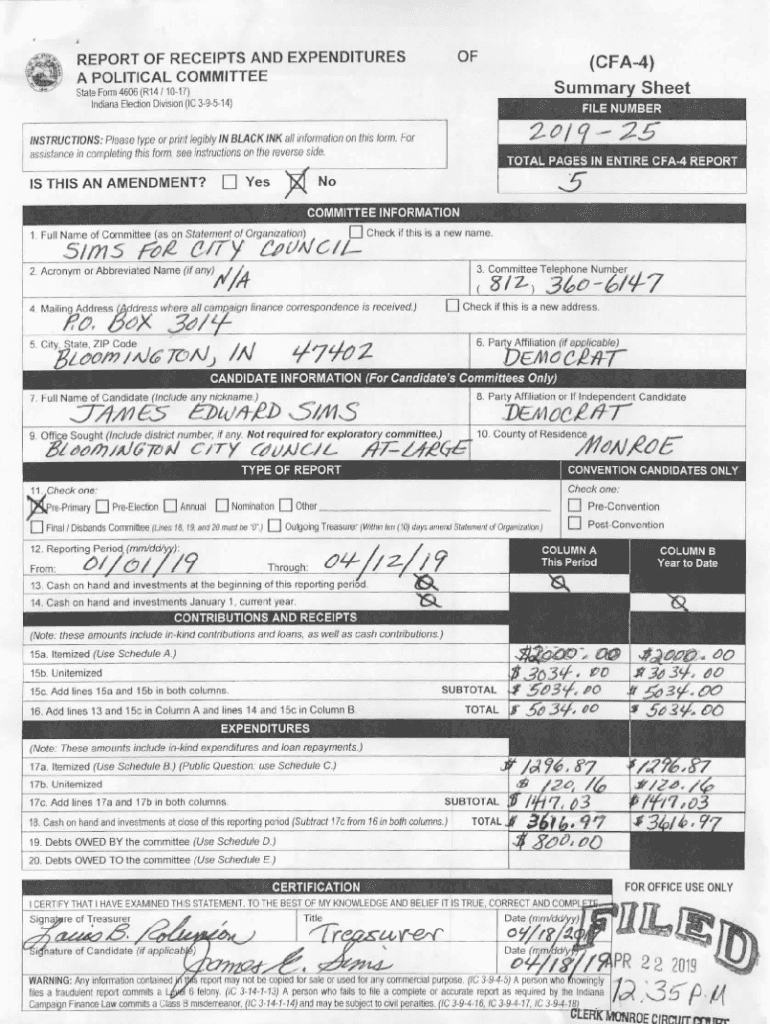 REPORT OF RECEIPTS AND EXPENDITURES OF
A POLITICAL COMMITTEE
State Form 4606 (R14 / 10-17)
Indiana Election Division (IC 3-9-5-14)
(CFA-4)
Summary Sheet
FILE NUMBER
2019-25
INSTRUCTIONS: Please type or print legibly IN BLACK INK all information on this form. For
assistance in completing this form, see instructions on the reverse side.
TOTAL PAGES IN ENTIRE CFA-4 REPORT
5
IS THIS AN AMENDMENT? Yes No
COMMITTEE INFORMATION
1. Full Name of Committee (as on Statement of Organization) Check if this is a new name.
SIMS FOR CITY COUNCIL
2. Acronym or Abbreviated Name (if any) N/A
3. Committee Telephone Number
(812) 360-6147
4. Mailing Address (Address where all campaign finance correspondence is received.) Check if this is a new address.
P.O. BOX 3014
5. City, State, ZIP Code
BLOOMINGTON, IN 47402
6. Party Affiliation (if applicable)
DEMOCRAT
CANDIDATE INFORMATION (For Candidate's Committees Only)
7. Full Name of Candidate (Include any nickname.)
JAMES EDWARD SIMS
8. Party Affiliation or If Independent Candidate
DEMOCRAT
9. Office Sought (Include district number, if any. Not required for exploratory committee.)
BLOOMINGTON CITY COUNCIL AT-LARGE
10. County of Residence
MONROE
TYPE OF REPORT
CONVENTION CANDIDATES ONLY
11. Check one:
Pre-Primary Pre-Election Annual Nomination Other
Final / Disbands Committee (Lines 18, 19, and 20 must be "0".) Outgoing Treasurer (Within ten (10) days amend Statement of Organization)
Check one:
Pre-Convention
Post-Convention
12. Reporting Period (mm/dd/yy):
From: 01/01/19 Through: 04/12/19
COLUMN A
This Period
COLUMN B
Year to Date
13. Cash on hand and investments at the beginning of this reporting period. 0 0
14. Cash on hand and investments January 1, current year. 0 0
CONTRIBUTIONS AND RECEIPTS
(Note: these amounts include in-kind contributions and loans, as well as cash contributions.)
15a. Itemized (Use Schedule A.) $2000.00 $2000.00
15b. Unitemized $3034.00 $3034.00
15c. Add lines 15a and 15b in both columns. SUBTOTAL $5034.00 $5034.00
16. Add lines 13 and 15c in Column A and lines 14 and 15c in Column B. TOTAL $5034.00 $5034.00
EXPENDITURES
(Note: These amounts include in-kind expenditures and loan repayments.)
17a. Itemized (Use Schedule B.) (Public Question: use Schedule C.) $1296.87 $1296.87
17b. Unitemized $120.16 $120.16
17c. Add lines 17a and 17b in both columns. SUBTOTAL $1417.03 $1417.03
18. Cash on hand and investments at close of this reporting period (Subtract 17c from 16 in both columns.) TOTAL $3616.97 $3616.97
19. Debts OWED BY the committee (Use Schedule D.) $800.00
20. Debts OWED TO the committee (Use Schedule E.)
CERTIFICATION
FOR OFFICE USE ONLY
I CERTIFY THAT I HAVE EXAMINED THIS STATEMENT. TO THE BEST OF MY KNOWLEDGE AND BELIEF IT IS TRUE, CORRECT AND COMPLETE.
Signature of Treasurer Title Date (mm/dd/yy)
B. Treasurer 04/18/
Signature of Candidate (if applicable) Date (mm/dd/yy)
James E. Sims 04/18/19
FILED
APR 22 2019
12:35 P.M
CLERK MONROE CIRCUIT COURT
WARNING: Any information contained in this report may not be copied for sale or used for any commercial purpose. (IC 3-9-4-5) A person who knowingly
files a fraudulent report commits a Level 6 felony. (IC 3-14-1-13) A person who fails to file a complete or accurate report as required by the Indiana
Campaign Finance Law commits a Class B misdemeanor, (IC 3-14-1-14) and may be subject to civil penalties. (IC 3-9-4-16, IC 3-9-4-17, IC 3-9-4-18)